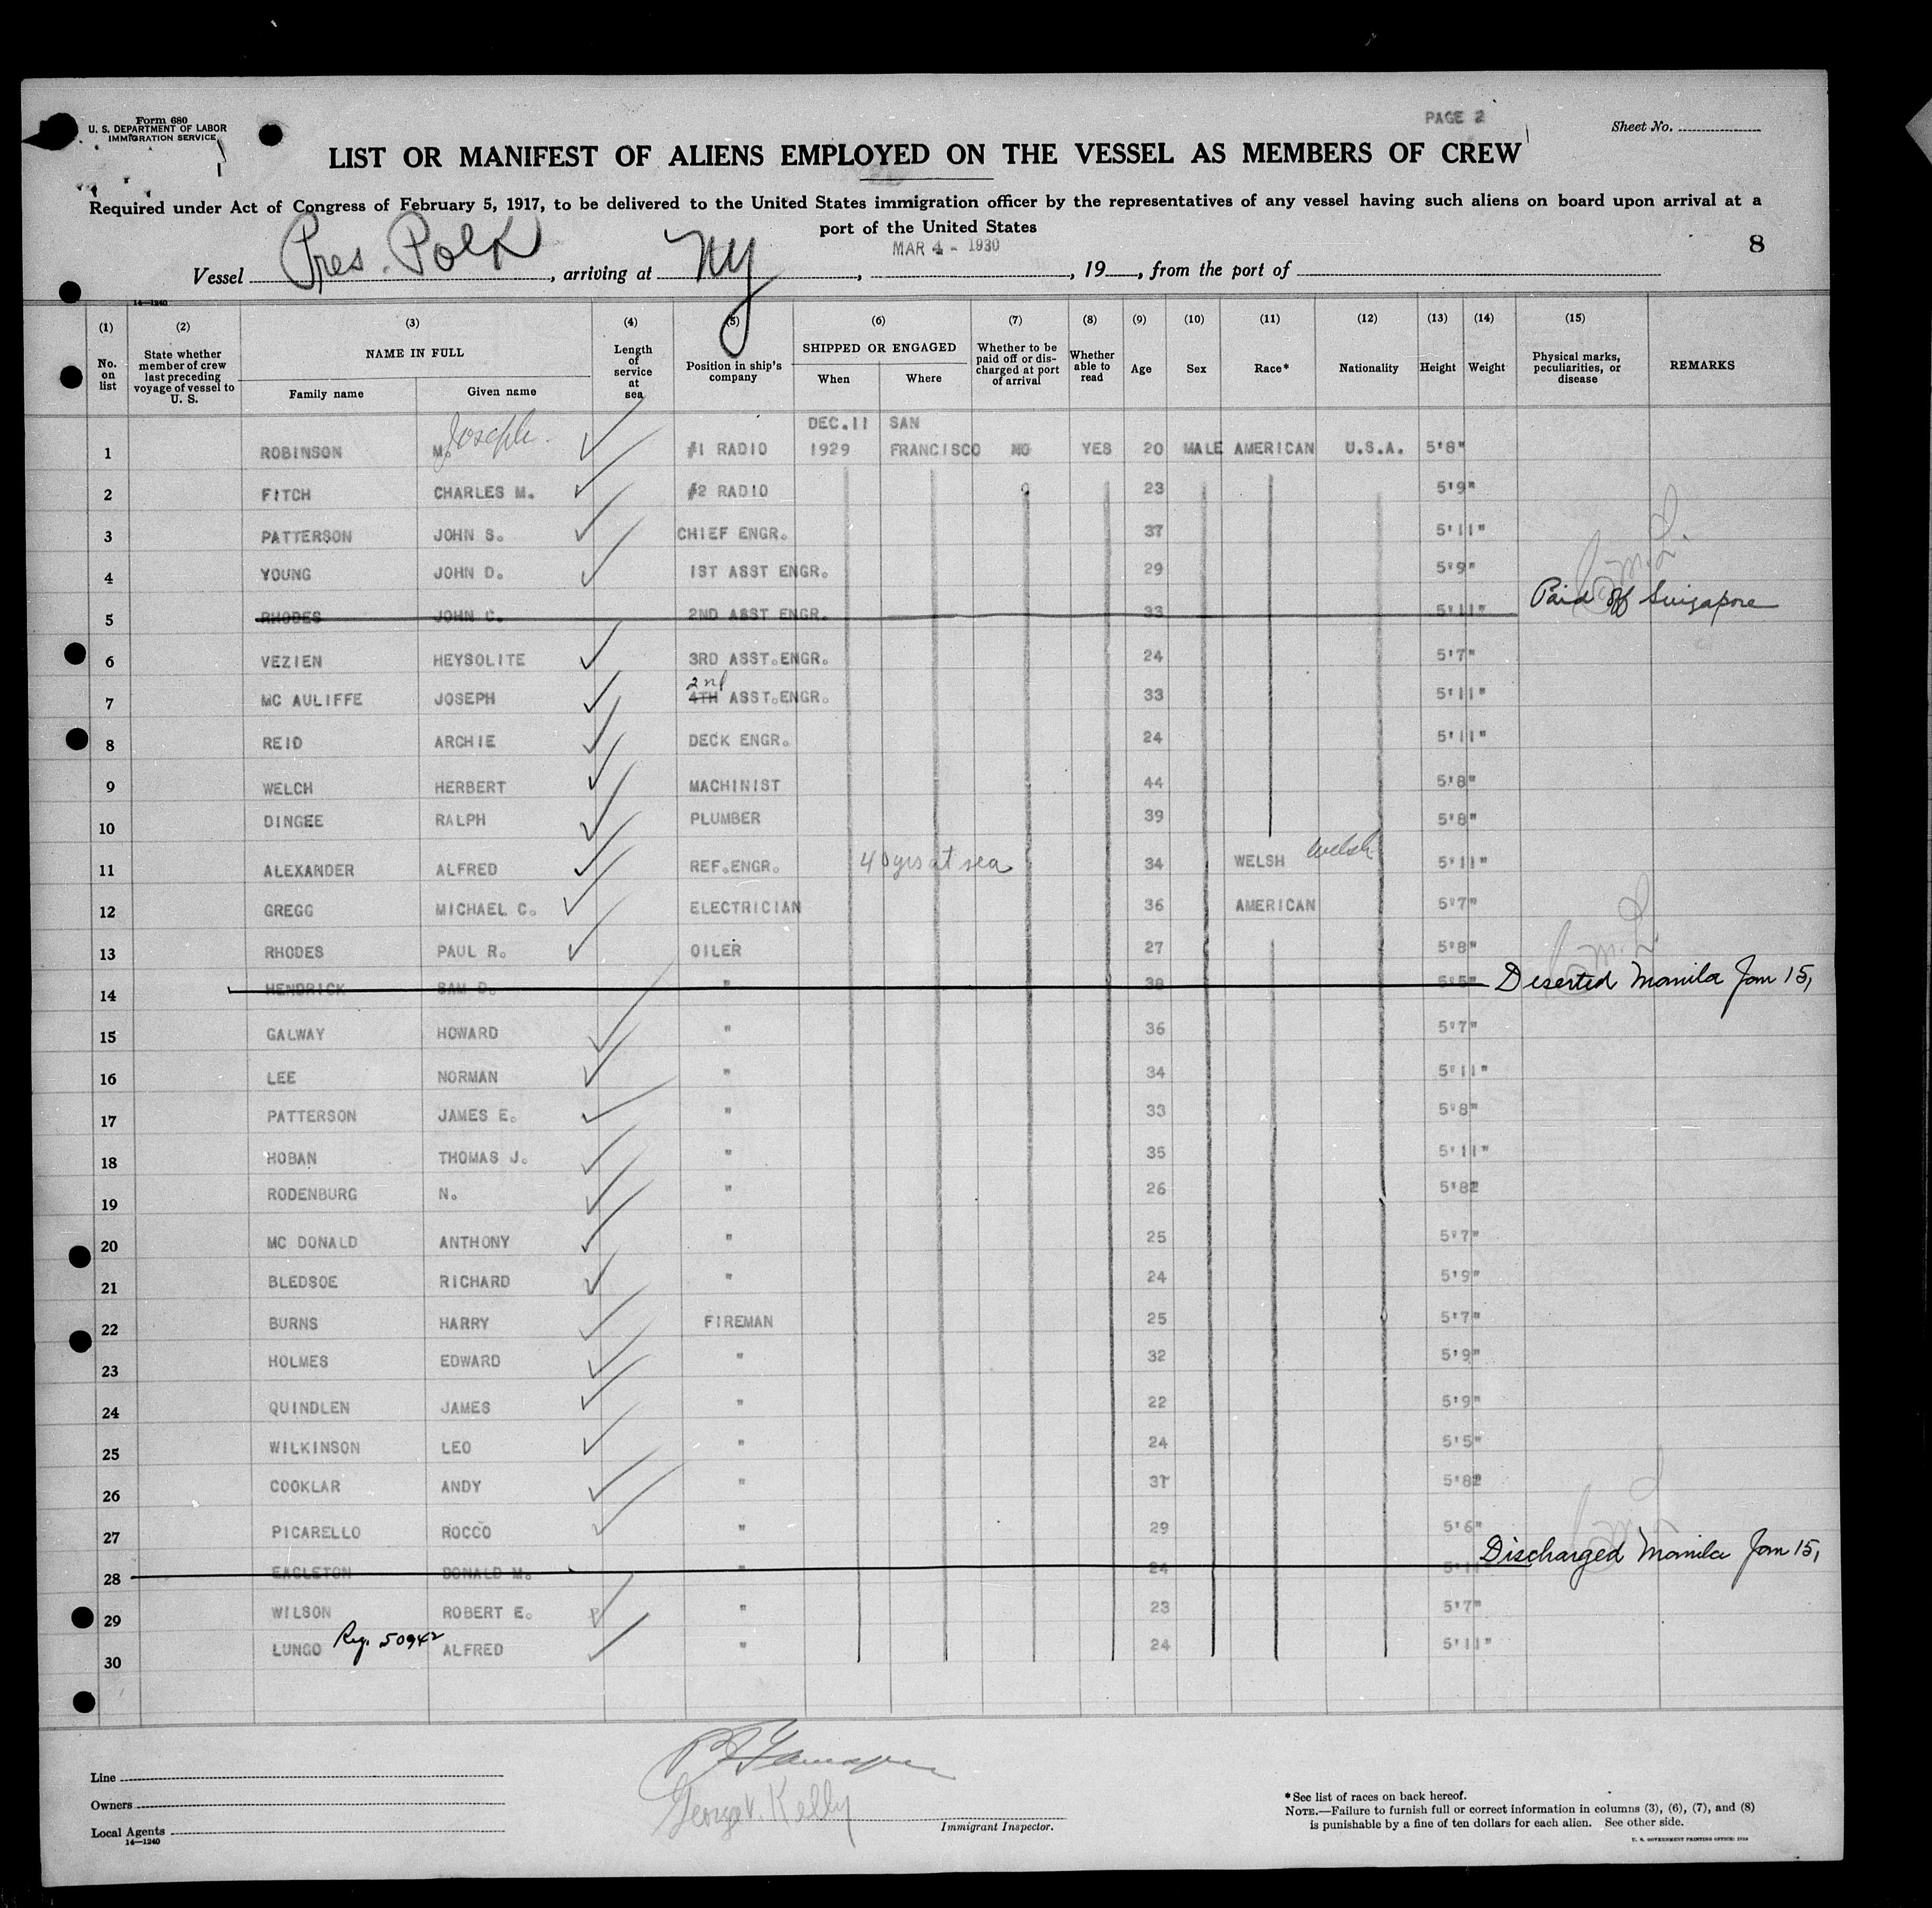 Form 680
U. S. DEPARTMENT OF LABOR
IMMIGRATION SERVICE
PAGE 2
Sheet No.
LIST OR MANIFEST OF ALIENS EMPLOYED ON THE VESSEL AS MEMBERS OF CREW
Required under Act of Congress of February 5, 1917, to be delivered to the United States immigration officer by the representatives of any vessel having such aliens on board upon arrival at a
port of the United States
MAR 4 - 1930
8
Vessel Pres. Polk, arriving at NY, , 19 , from the port of
14—1240
(1) (2) (3) (4) (5) (6) (7) (8) (9) (10) (11) (12) (13) (14) (15)
No. on list State whether member of crew last preceding voyage of vessel to U. S. NAME IN FULL Family name Given name Length of service at sea Position in ship's company SHIPPED OR ENGAGED When Where Whether to be paid off or discharged at port of arrival Whether able to read Age Sex Race* Nationality Height Weight Physical marks, peculiarities, or disease REMARKS
Joseph. DEC.11 SAN
1 ROBINSON M. #1 RADIO 1929 FRANCISCO NO YES 20 MALE AMERICAN U.S.A. 5'8"
2 FITCH CHARLES M. #2 RADIO 23 5'9"
3 PATTERSON JOHN S. CHIEF ENGR. 37 5'11"
4 YOUNG JOHN D. 1ST ASST ENGR. 29 5'9"
5 RHODES JOHN C. 2ND ASST ENGR. 33 5'11" Paid off Singapore
6 VEZIEN HEYSOLITE 3RD ASST.ENGR. 24 5'7"
2nd
7 MC AULIFFE JOSEPH 4TH ASST.ENGR. 33 5'11"
8 REID ARCHIE DECK ENGR. 24 5'11"
9 WELCH HERBERT MACHINIST 44 5'8"
10 DINGEE RALPH PLUMBER 39 5'8"
11 ALEXANDER ALFRED REF.ENGR. 40 yrs at sea 34 WELSH Welsh 5'11"
12 GREGG MICHAEL C. ELECTRICIAN 36 AMERICAN 5'7"
13 RHODES PAUL R. OILER 27 5'8"
14 HENDRICK SAM D. " 38 5'5" Deserted Manila Jan 15,
15 GALWAY HOWARD " 36 5'7"
16 LEE NORMAN " 34 5'11"
17 PATTERSON JAMES E. " 33 5'8"
18 HOBAN THOMAS J. " 35 5'11"
19 RODENBURG N. " 26 5'82
20 MC DONALD ANTHONY " 25 5'7"
21 BLEDSOE RICHARD " 24 5'9"
22 BURNS HARRY FIREMAN 25 5'7"
23 HOLMES EDWARD " 32 5'9"
24 QUINDLEN JAMES " 22 5'9"
25 WILKINSON LEO " 24 5'5"
26 COOKLAR ANDY " 31 5'82
27 PICARELLO ROCCO " 29 5'6"
28 EAGLETON DONALD M. " 24 5'11 Discharged Manila Jan 15,
29 WILSON ROBERT E. " 23 5'7"
30 LUNGO Reg. 50942 ALFRED " 24 5'11"
George V. Kelly
Immigrant Inspector.
Line
Owners
Local Agents
14—1240
*See list of races on back hereof.
NOTE.—Failure to furnish full or correct information in columns (3), (6), (7), and (8)
is punishable by a fine of ten dollars for each alien. See other side.
U. S. GOVERNMENT PRINTING OFFICE: